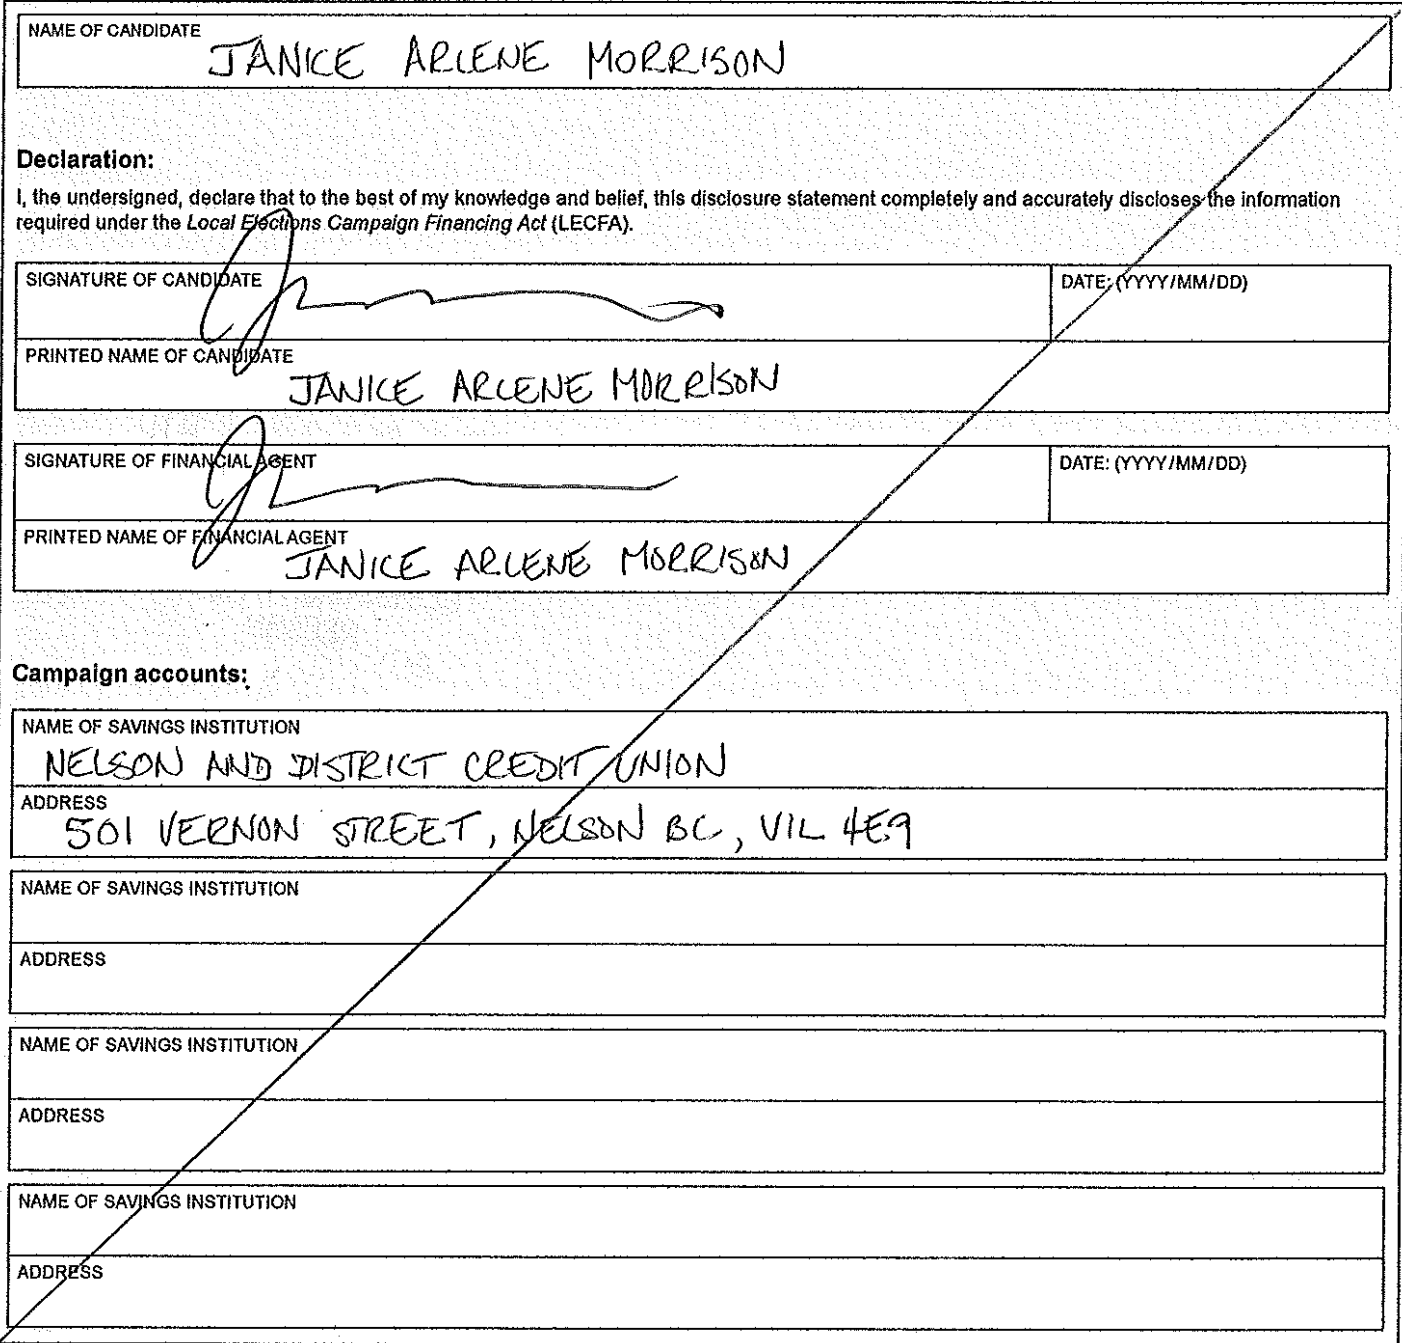 NAME OF CANDIDATE
JANICE ARLENE MORRISON
Declaration:
I, the undersigned, declare that to the best of my knowledge and belief, this disclosure statement completely and accurately discloses the information
required under the Local Elections Campaign Financing Act (LECFA).
SIGNATURE OF CANDIDATE
DATE: (YYYY/MM/DD)
PRINTED NAME OF CANDIDATE
JANICE ARLENE MORRISON
SIGNATURE OF FINANCIAL AGENT
DATE: (YYYY/MM/DD)
PRINTED NAME OF FINANCIAL AGENT
JANICE ARLENE MORRISON
Campaign accounts:
NAME OF SAVINGS INSTITUTION
NELSON AND DISTRICT CREDIT UNION
ADDRESS
501 VERNON STREET, NELSON BC, V1L 4E9
NAME OF SAVINGS INSTITUTION
ADDRESS
NAME OF SAVINGS INSTITUTION
ADDRESS
NAME OF SAVINGS INSTITUTION
ADDRESS